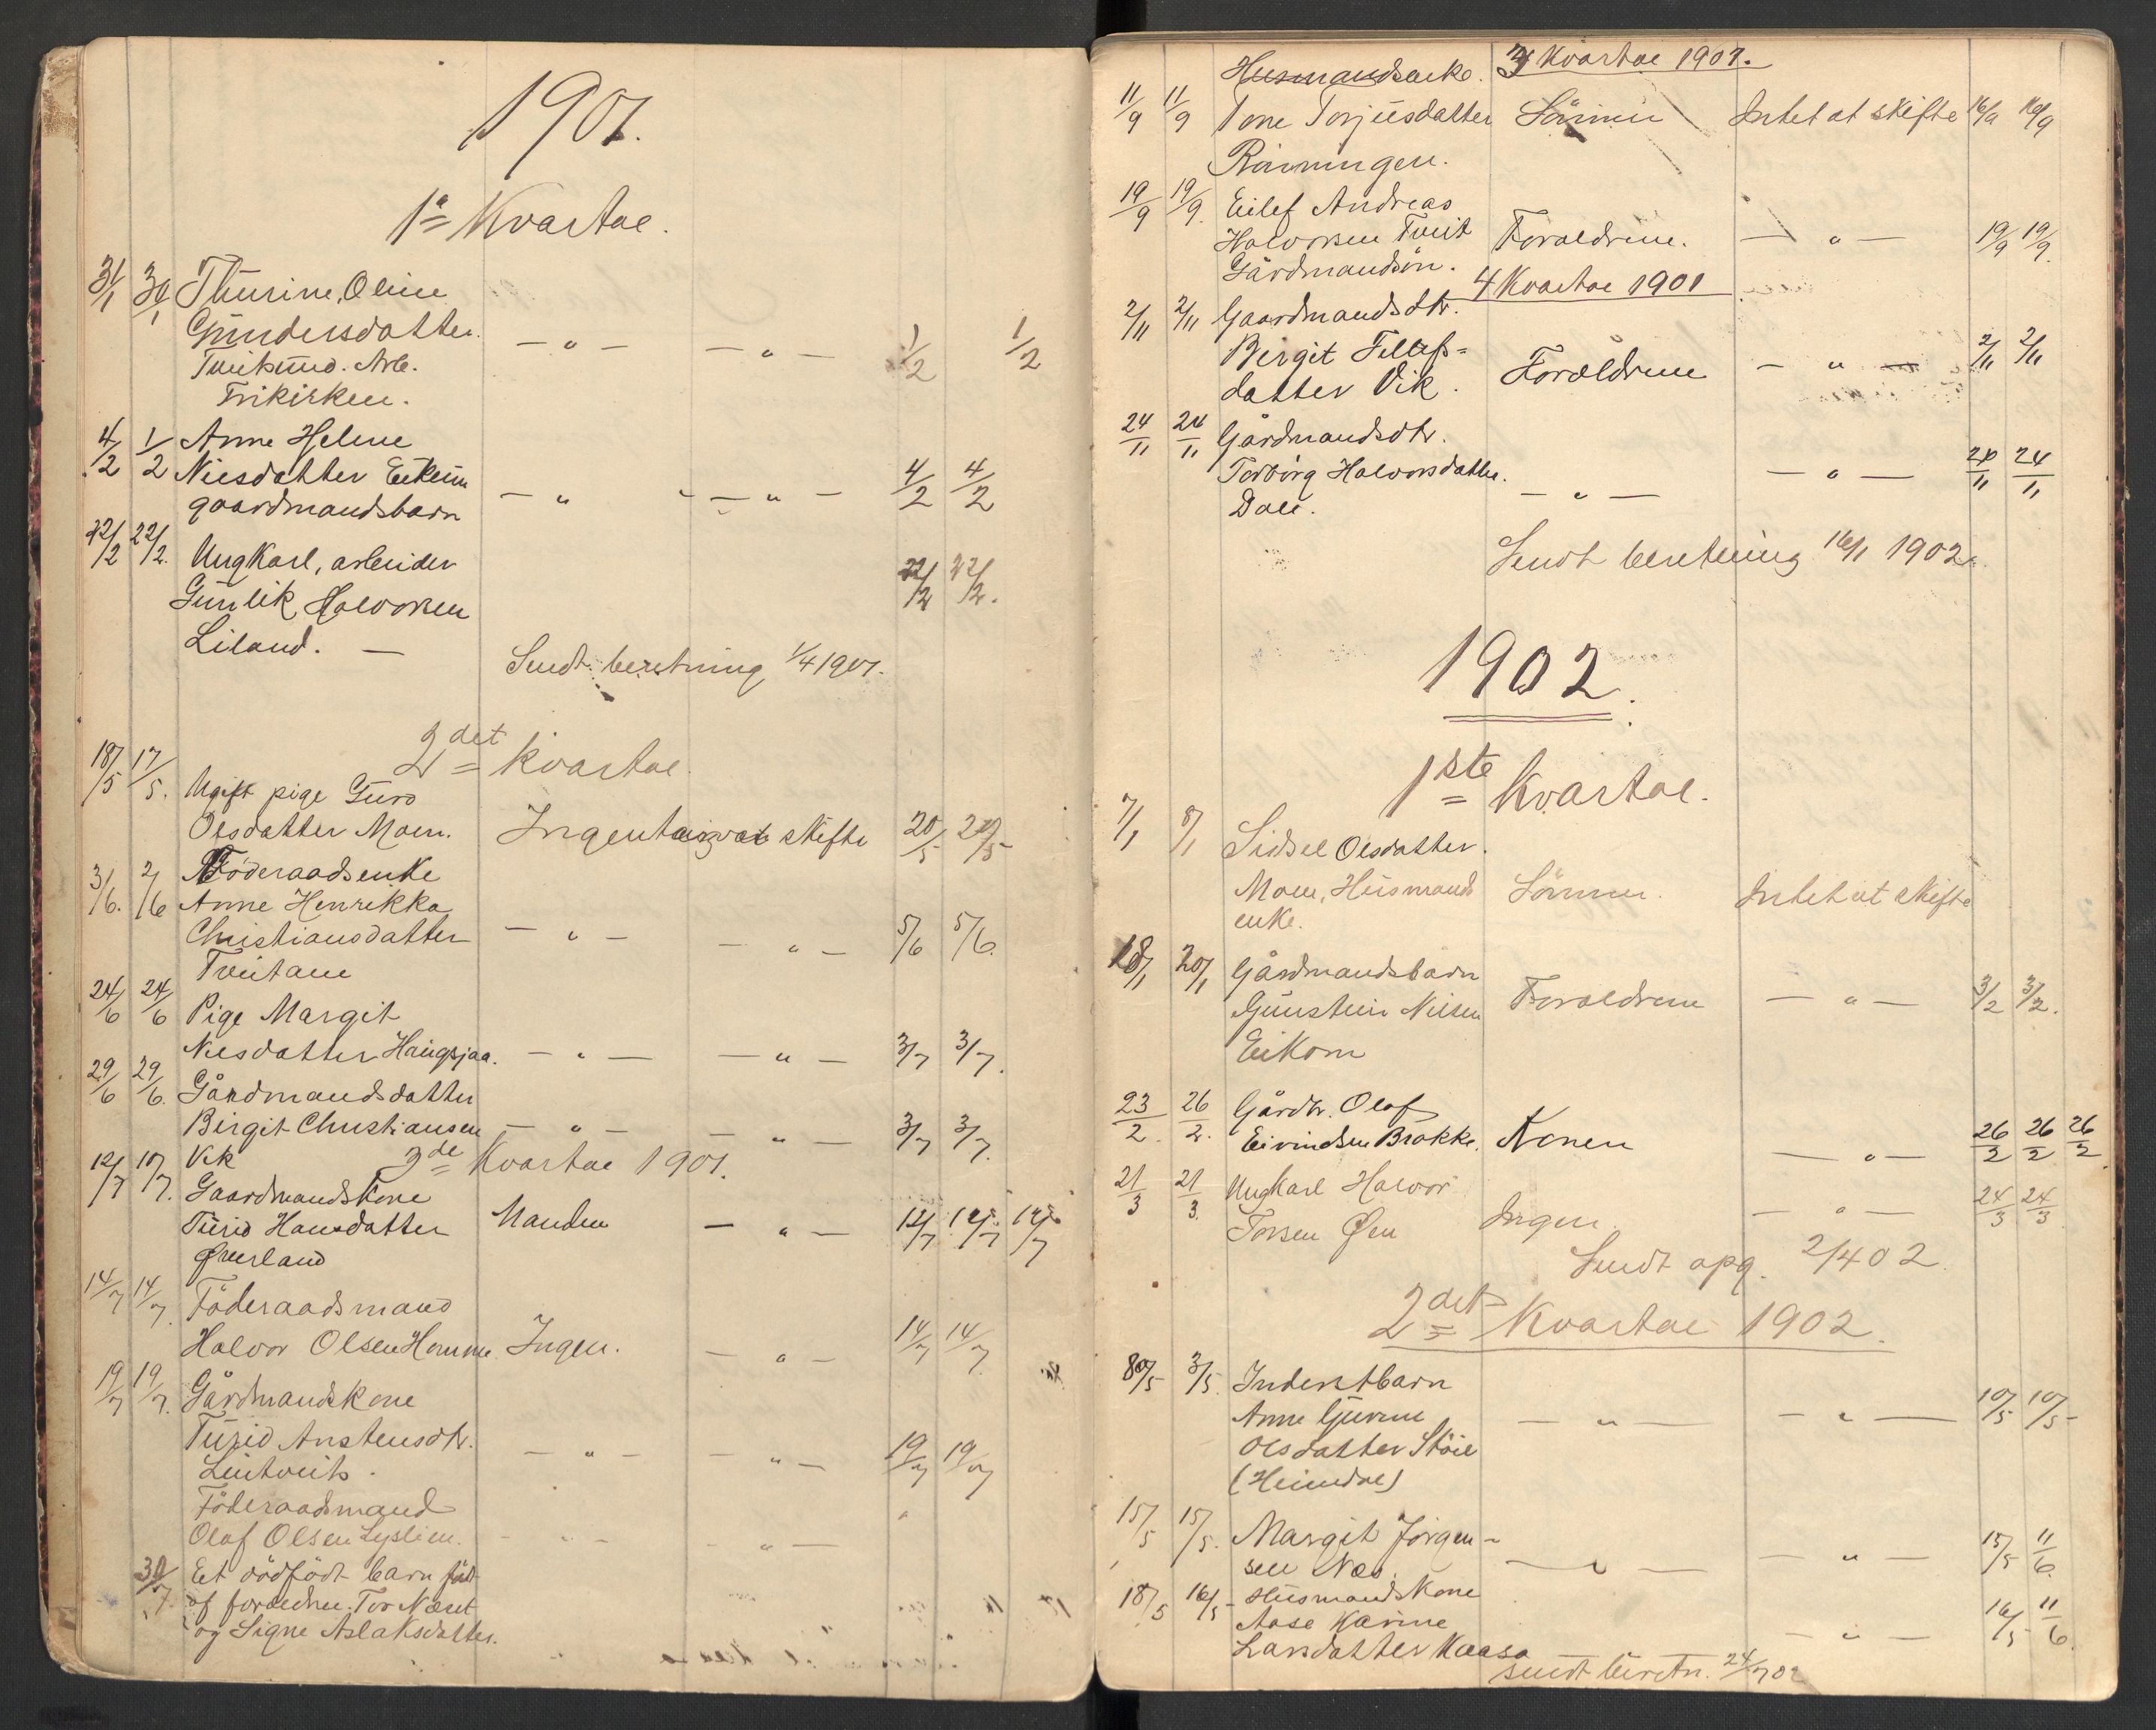 1901.
1ª Kvartal.
31/1 30/1 Thurine, Oline
Gundersdatter. — " — — " — 1/2 1/2
Arb.
Frikirken.
4/2 1/2 Anne Helene
Nilsdatter Eikeim — " — " — 4/2 4/2
gaardmandsbarn
22/2 22/2. Ungkarl, arbeider
Gunlik Halvorsen 22/2 22/2.
Liland. —
Sendt beretning 1/4 1901.
2det kvartal
18/5 17/5. Ugift pige Guro
Olsdatter Moen. Ingenting at skifte 20/5 20/5
3/6. 2/6 Föderaadsenke
Anne Henrikka
Christiansdatter — " — — " — 5/6 5/6.
Tveitane
24/6 24/6 Pige Margit
Nilsdatter Haugsjaa. — " — — " — 3/7 3/7.
29/6 29/6. Gårdmandsdatter
Birgit Christiansen — " — — " — 3/7 3/7.
Vik 3de Kvartal 1901.
12/7 10/7. Gaardmandskone
Turid Hansdatter Manden — " — 12/7 12/7 12/7
Øverland
14/7 14/7. Föderaadsmand
Halvor Olsen Homme Ingen. — " — 14/7 14/7.
19/7 19/7. Gårdmandskone
Turid Anstensdtr. — " — — " — 19/7 19/7
Lintveit.
Föderaadsmand
Olaf Olsen Lyslien. — " — — " —
30/7. Et dödfödt barn födt
af foraeldre. Tor Næset
og Signe Aslaksdatter.
Husmandsenke. 3 Kvartal 1901.
11/9 11/9 Tone Torjusdatter Sönner Intet at skifte 16/9 16/9
Rönningen.
19/9 19/9. Eilef Andreas
Halvorsen Tveit Foraeldrene. — " — 19/9 19/9.
Gårdmandsön.
4 Kvartal 1901
2/11 2/11 Gaardmandsdtr.
Birgit Tellefs=
datter Vik. Foraeldrene — " — 2/11 2/11
24/11 24/11 Gårdmandsdtr.
Torborg Halvorsdatter. — " — — " — 24/11 24/11
Dale.
Sendt beretning 16/1 1902.
1902.
1ste Kvartal.
7/1 8/1 Sidsel Olsdatter.
Moen, Husmands Sönner. Intet at skifte
enke.
18/1 20/1 Gårdmandsbarn
Gunstein Nilsen Foraeldrene — " — 3/2 3/2.
Eikom
23/2. 26/2. Gårdbr. Olaf
Eivindsen Brokke. Konen — " — 26/2 26/2 26/2
21/3 21/3. Ungkarl Halvor
Torsen Øen Ingen. — " — 24/3 24/3
Sendt opg. 2/4 02
2det Kvartal 1902.
3/5. Inderstbarn
Anne Gurine — " — — " — 10/5 10/5
Olsdatter Støie
(Heimdal)
15/5 15/5. Margit Jörgen-
sen Næs. — " — — " — 15/5 11/6.
18/5 16/5 Husmandskone
Aase Karine — " — 16/5 11/6.
Larsdatter Kaasa
sendt beretn. 24/7 02